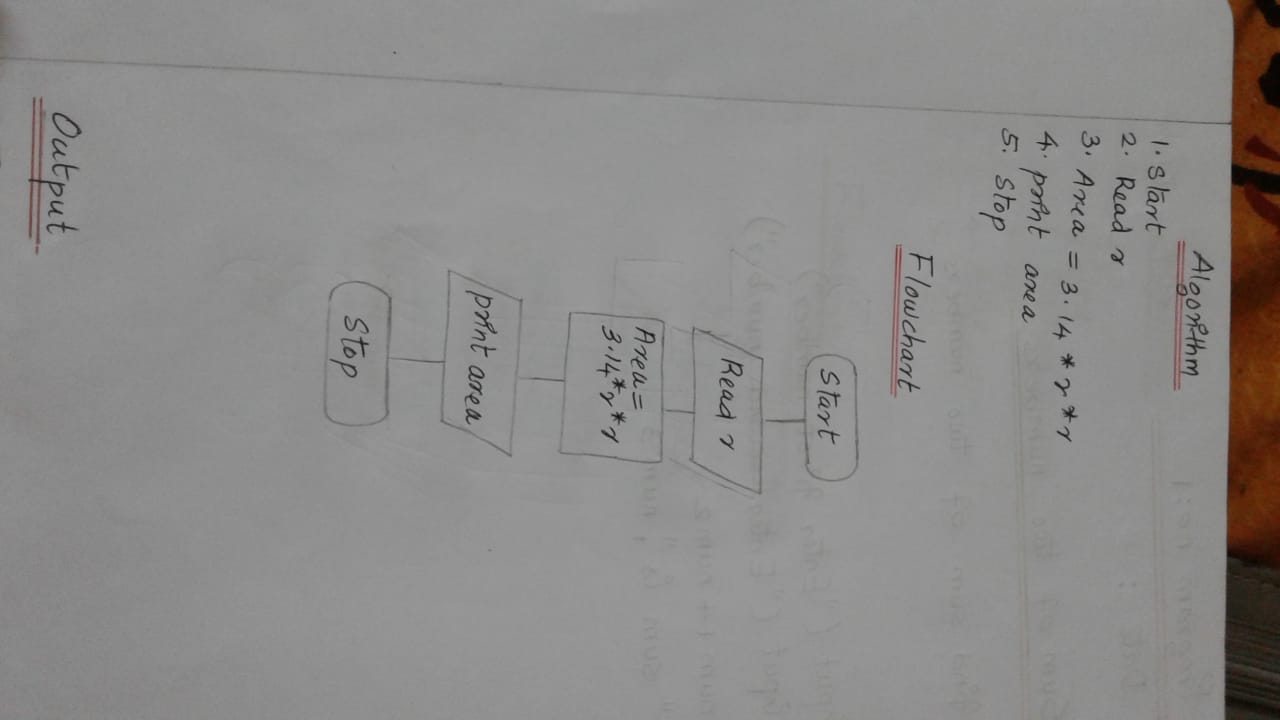 Algorithm
1. Start
2. Read r
3. Area = 3.14 * r * r
4. print area
5. Stop
Flowchart
Start
Read r
Area =
3.14*r*r
print area
Stop
Output